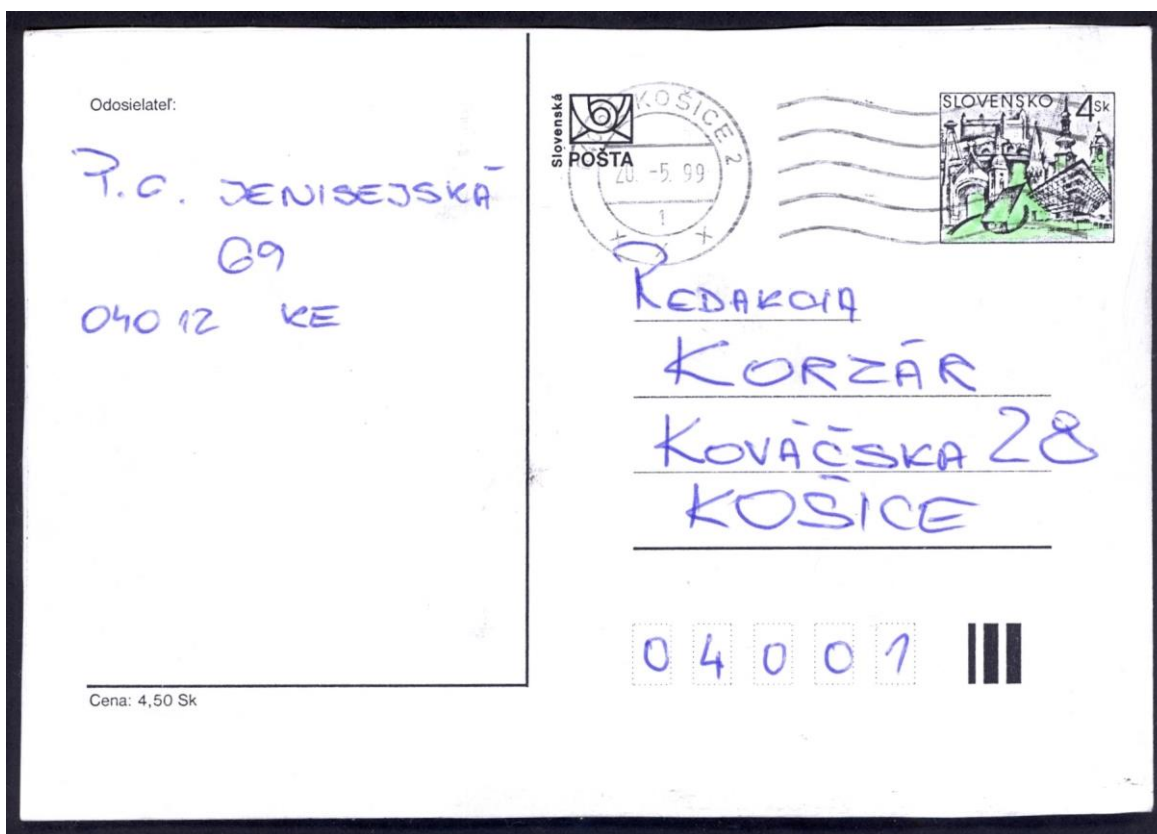 Odosielateľ:
P.C. JENISEJSKÁ
69
040 12 KE
Cena: 4,50 Sk
Slovenská
POŠTA
KOŠICE 2
20. -5. 99
1
SLOVENSKO 4Sk
REDAKCIA
KORZÁR
KOVÁČSKA 28
KOŠICE
04001